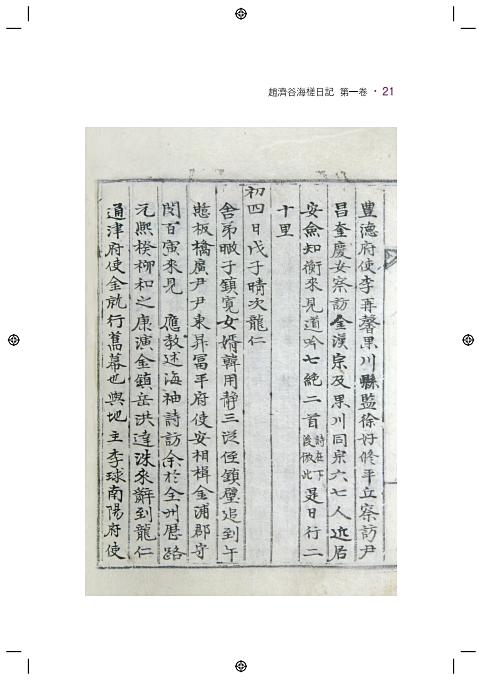 趙濟谷海槎日記 第一卷 · 21
豊德府使李再馨果川縣監徐好修平立察訪尹
昌奎慶安察訪金漢宗及果川同宗六七人近居
安僉知衡來見道吟七絶二首詩在下後倣此是日行二
十里
初四日戊子晴次龍仁
舍弟暾子鎭寬女婿韓用靜三從侄鎭璧追到午
憩板橋廣尹尹東昇冨平府使安相楫金浦郡守
閔百寅來見 應敎述海袖詩訪余於全州歷路
元熙揆柳和之康演金鎭岳洪達洙來辭到龍仁
通津府使金就行舊幕也與地主李球南陽府使